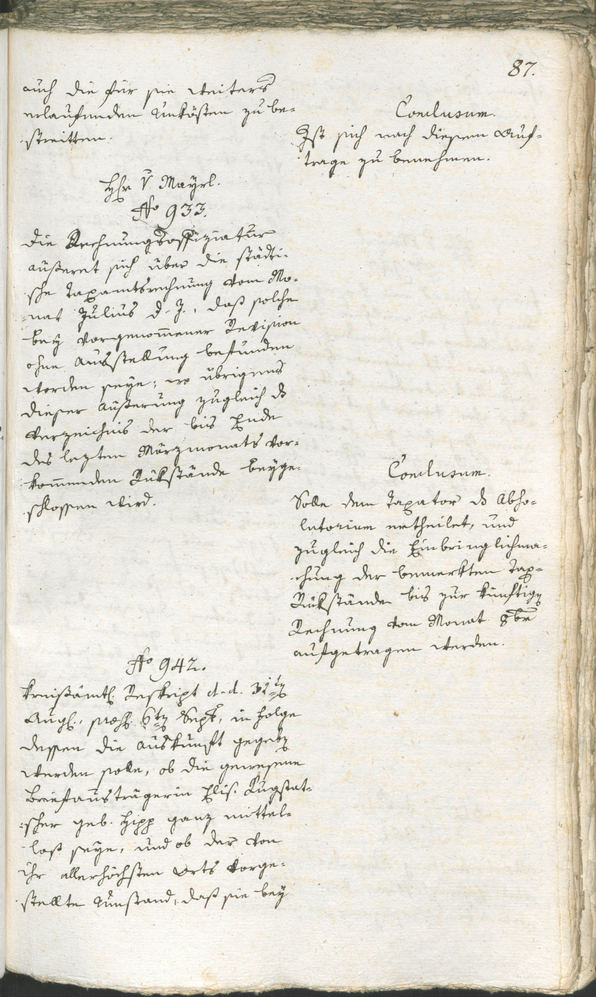 87.
auch die für sie weiters
erlaufenden Unkösten zu be-
streitten.
Conclusum.
Ist sich nach diesem Auf-
trage zu benehmen.
Hr. v Mayrl.
No 933.
Die Rechnungsoffiziatur
äußeret sich über die städti-
sche Taxamtsrechnung vom Mo-
nat Julius d. J., daß solche
bey vorgenommener Revision
ohne Ausstellung befunden
worden seye; wo übrigens
dieser Äußerung zugleich ds
Verzeichnis der bis Ende
des lezten Märzmonats vor-
kommenden Rükstände beyge-
schlossen wird.
Conclusum.
Solle dem Taxator ds Abso-
lutorium ertheilet, und
zugleich die Einbringlichma-
chung der bemerkten Tax-
Rükstände bis zur künftign
Rechnung vom Monat 8ber
aufgetragen werden.
No 942.
Kreißämtl. Reskript d. d. 31tn
Augst., praes. 6tn Sept., in Folge
dessen die Auskunft gegebn
werden solle, ob die gewesene
Briefausträgerin Elis. Augstat-
scher geb. Hipp ganz mittel-
los seye, und ob der von
ihr allerhöchsten Orts vorge-
stellte Umstand, daß sie bey